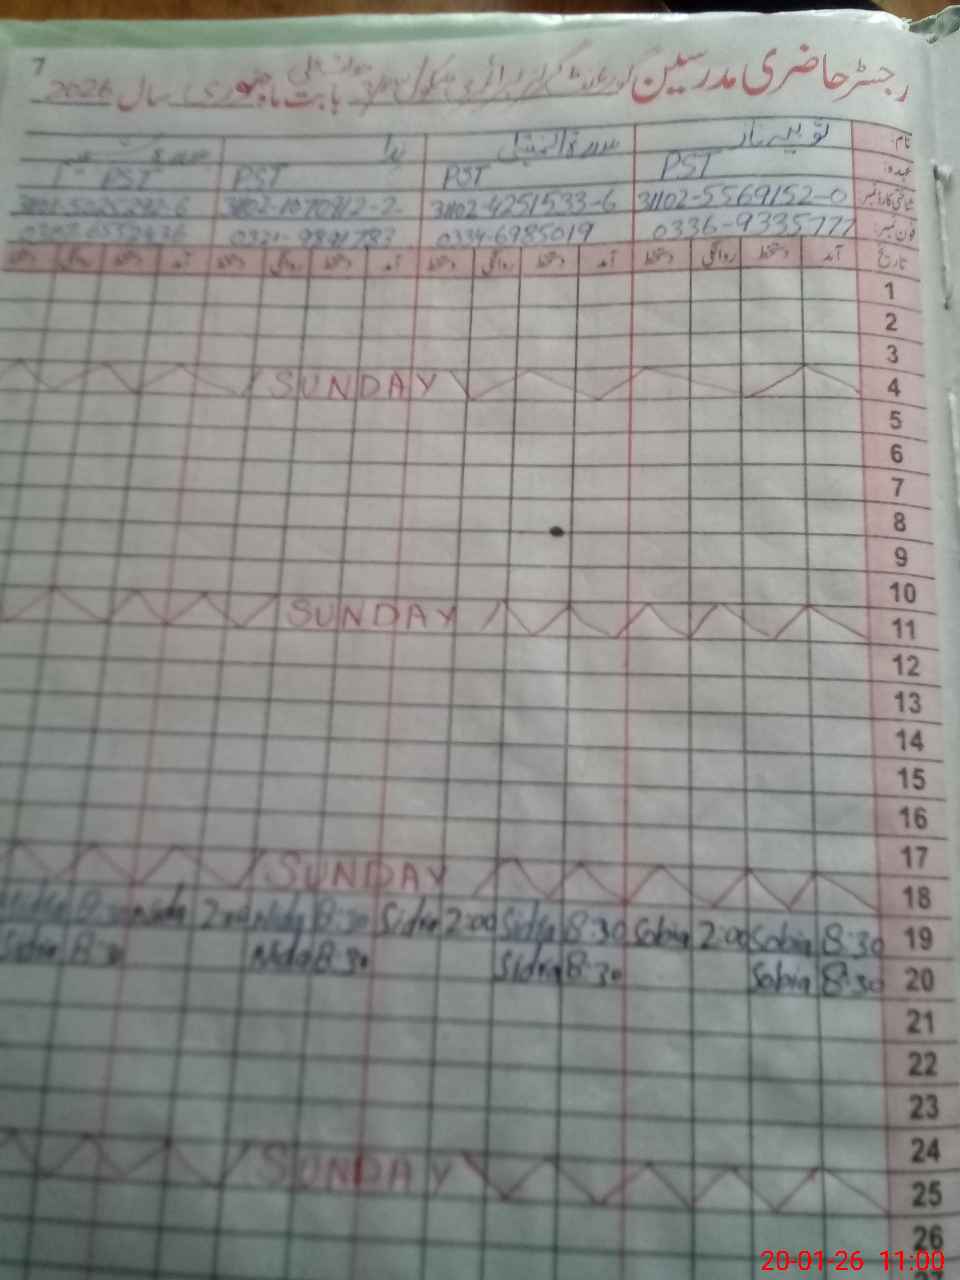 7
رجسٹر حاضری مدرسین گورنمنٹ گرلز پرائمری سکول بابت ماہ جنوری سال 2026
نام: ثوبیہ ناز سدرۃ المنتہیٰ ندا
عہدہ: PST PST PST PST
شناختی کارڈ نمبر 31102-5569152-0 31102-4251533-6
فون نمبر: 0336-9335777 0334-6985019 0321-9891783
تاریخ آمد دستخط روانگی دستخط آمد دستخط روانگی دستخط آمد دستخط روانگی دستخط آمد دستخط روانگی دستخط
1
2
3
SUNDAY 4
5
6
7
8
9
10
SUNDAY 11
12
13
14
15
16
17
SUNDAY 18
8:30 Nida 2:00 Nida 8:30 Sidra 2:00 Sidra 8:30 Sobia 2:00 Sobia 8:30 19
Sidra 8:30 Nida 8:30 Sidra 8:30 Sobia 8:30 20
21
22
23
24
SUNDAY 25
26
20-01-26 11:00